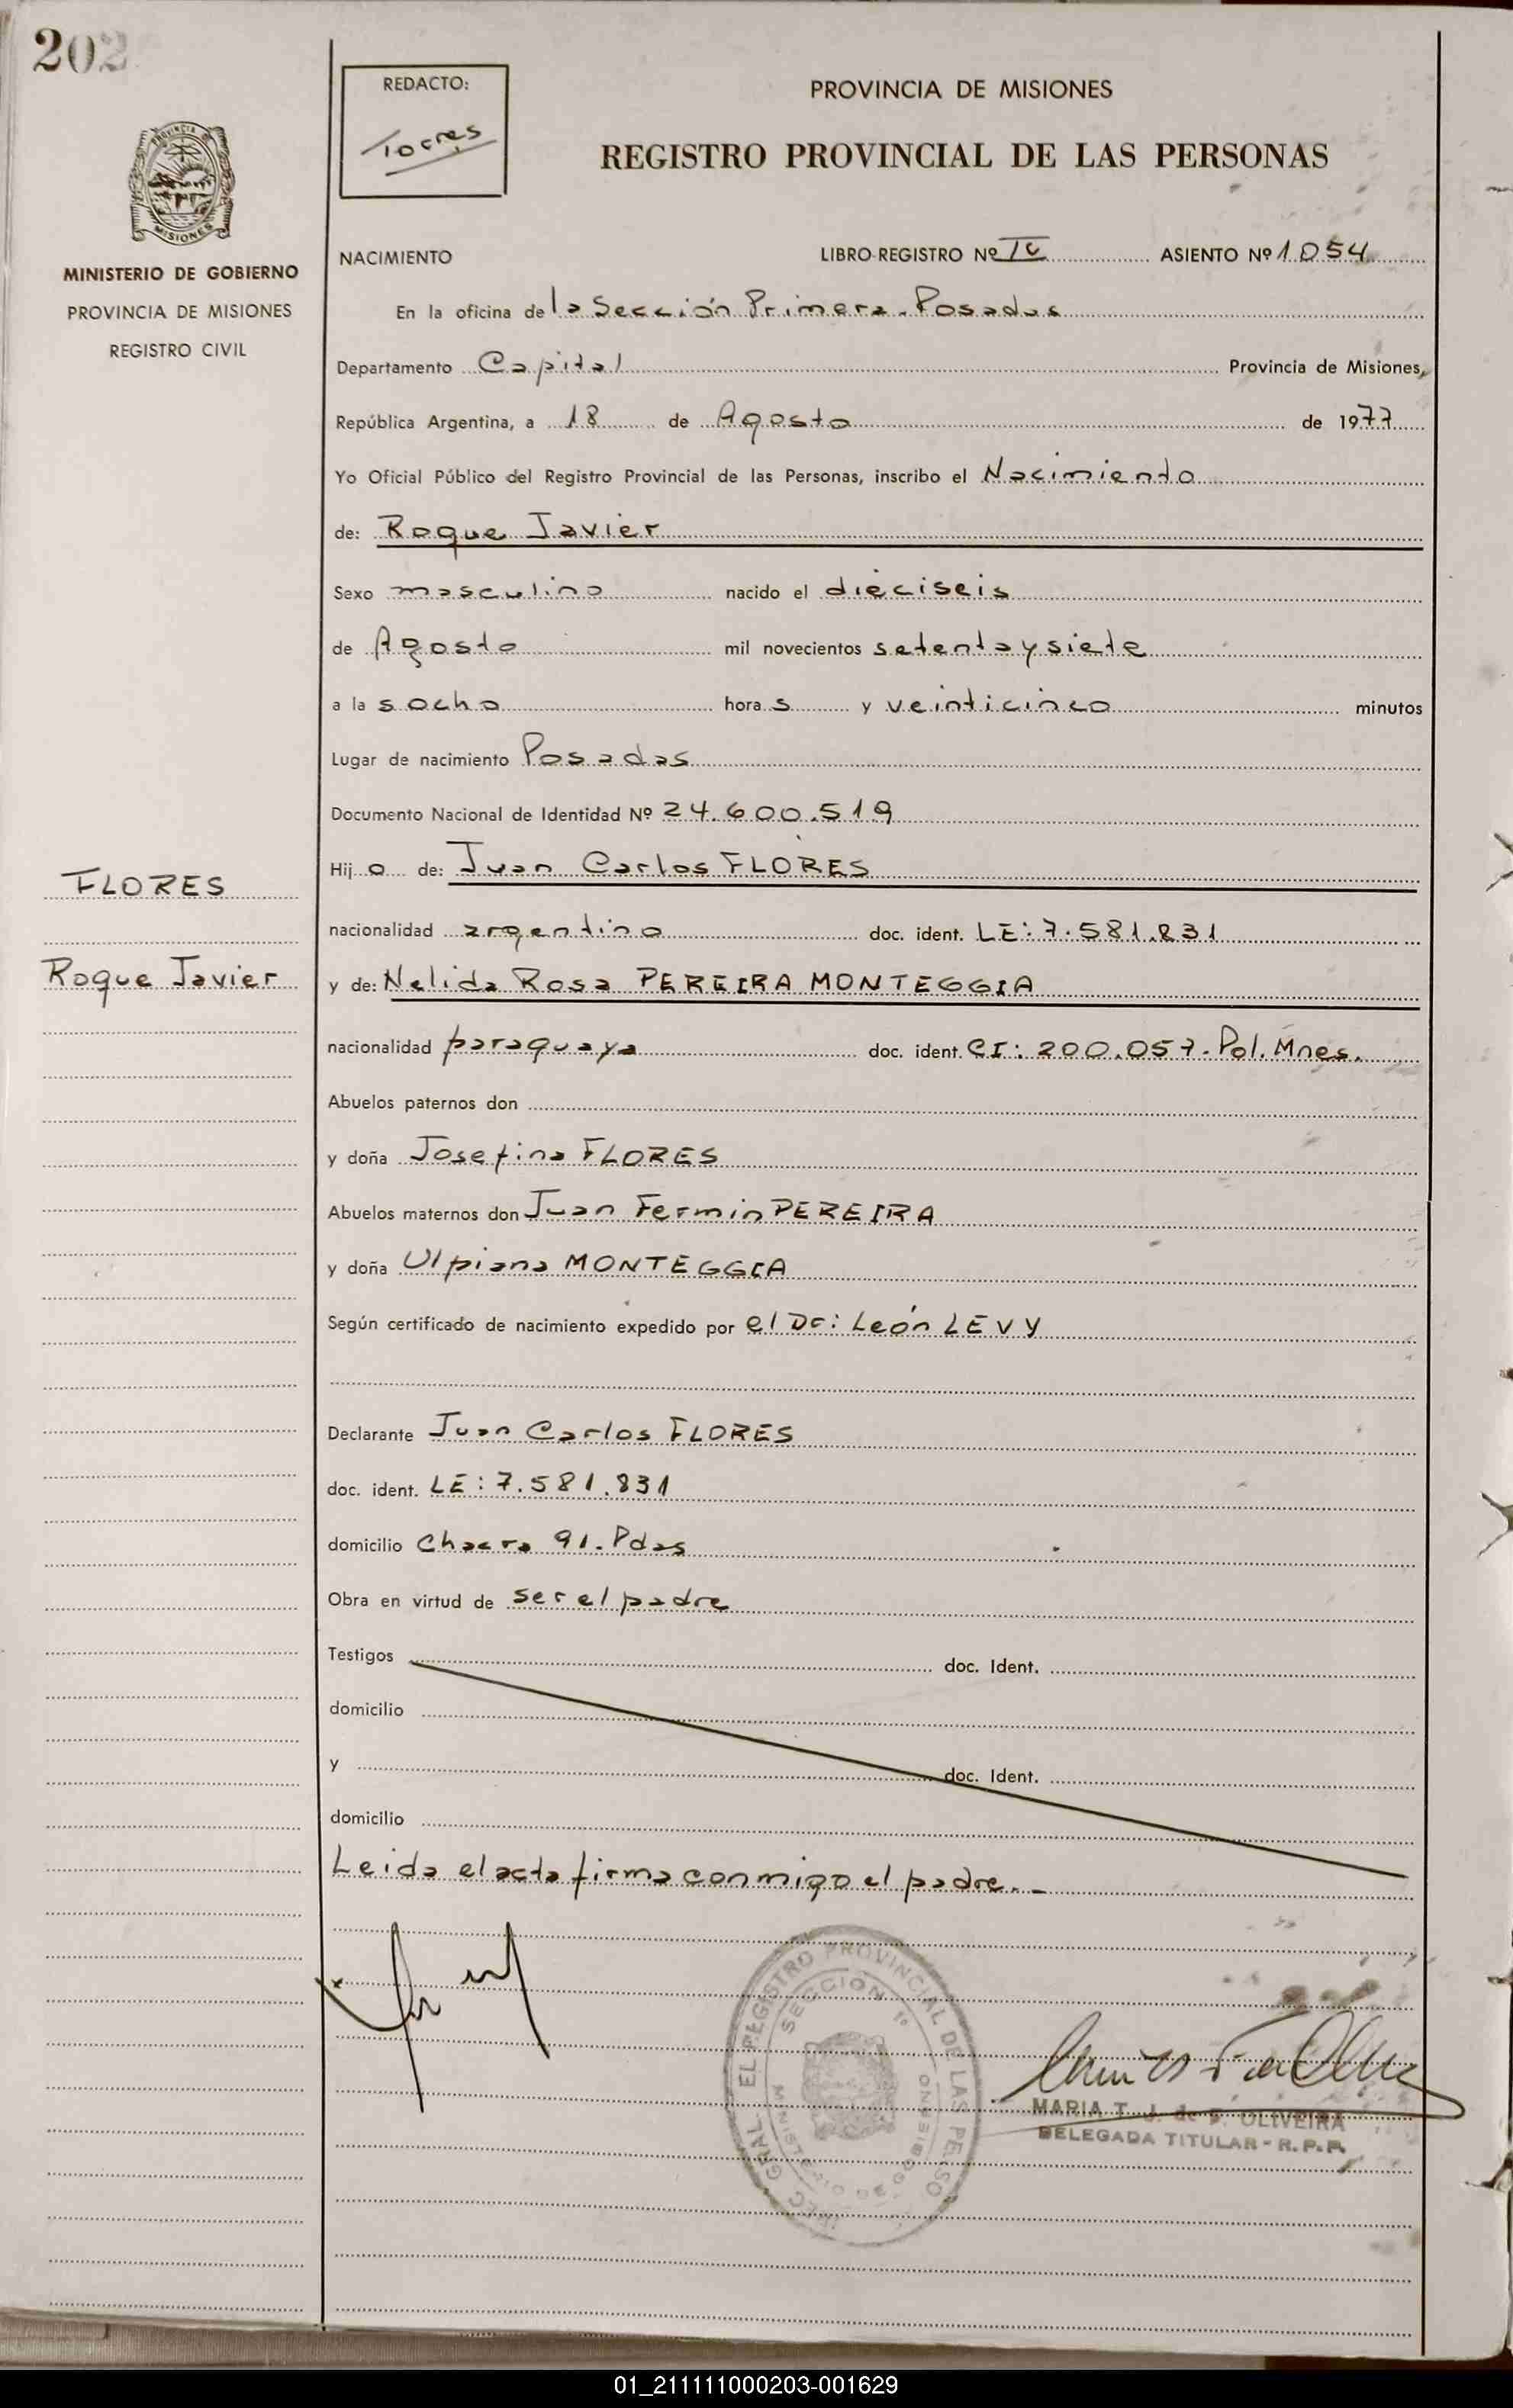 202
PROVINCIA DE MISIONES
MINISTERIO DE GOBIERNO
PROVINCIA DE MISIONES
REGISTRO CIVIL
REDACTO:
Torres
PROVINCIA DE MISIONES
REGISTRO PROVINCIAL DE LAS PERSONAS
NACIMIENTO LIBRO-REGISTRO Nº IV ASIENTO Nº 1054
En la oficina de la Sección Primera. Posadas
Departamento Capital Provincia de Misiones,
República Argentina, a 18 de Agosto de 1977
Yo Oficial Público del Registro Provincial de las Personas, inscribo el Nacimiento
de: Roque Javier
Sexo masculino nacido el dieciseis
de Agosto mil novecientos setenta y siete
a las ocho horas y veinticinco minutos
Lugar de nacimiento Posadas
Documento Nacional de Identidad Nº 24.600.519
Hijo de: Juan Carlos FLORES
FLORES
nacionalidad argentino doc. ident. LE: 7.581.831
Roque Javier
y de: Nelida Rosa PEREIRA MONTEGGIA
nacionalidad paraguaya doc. ident. CI: 200.057. Pol. Mnes.
Abuelos paternos don
y doña Josefina FLORES
Abuelos maternos don Juan Fermin PEREIRA
y doña Ulpiana MONTEGGIA
Según certificado de nacimiento expedido por el Dr: León LEVY
Declarante Juan Carlos FLORES
doc. ident. LE: 7.581.831
domicilio Chacra 91. Pdas
Obra en virtud de ser el padre
Testigos doc. Ident.
domicilio
y doc. Ident.
domicilio
Leida el acta firma conmigo el padre. -
GRAL EL REGISTRO PROVINCIAL DE LAS PERSO
SECCION 1º
MINISTERIO DE GOBIERNO
MARIA T. J. de F. OLIVEIRA
DELEGADA TITULAR - R.P.P.
01_211111000203-001629